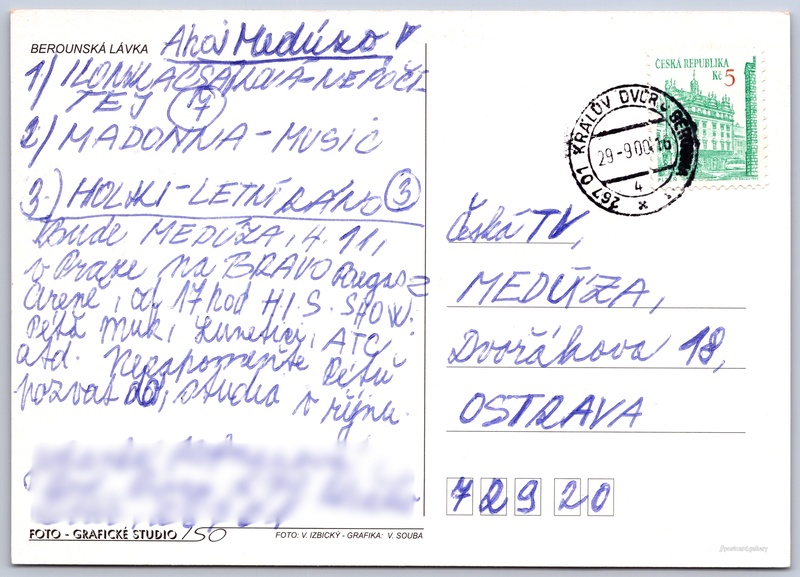 BEROUNSKÁ LÁVKA
Ahoj Medúzo,
1) ILONKA CSÁKOVÁ - NEPOČÍ
TEJ 7
2) MADONNA - MUSIC
3.) HOLKI - LETNÍ RÁNO 3
Bude MEDÚZA, 4. 11,
v Praze na BRAVO Pegas
Areně, od 17 hod H.I.S. SHOW.
Péťa Muk, Lunetici, ATC
atd. Nezapomeňte Péťu
pozvat do, studia v říjnu.
FOTO - GRAFICKÉ STUDIO /50
FOTO: V. IZBICKÝ - GRAFIKA: V. SOUBA
ČESKÁ REPUBLIKA
Kč 5
267 01 KRÁLŮV DVŮR U BEROUNA
29-9.00.16
4
Česká TV,
MEDÚZA,
Dvořákova 18,
OSTRAVA
729 20
//postcard.gallery